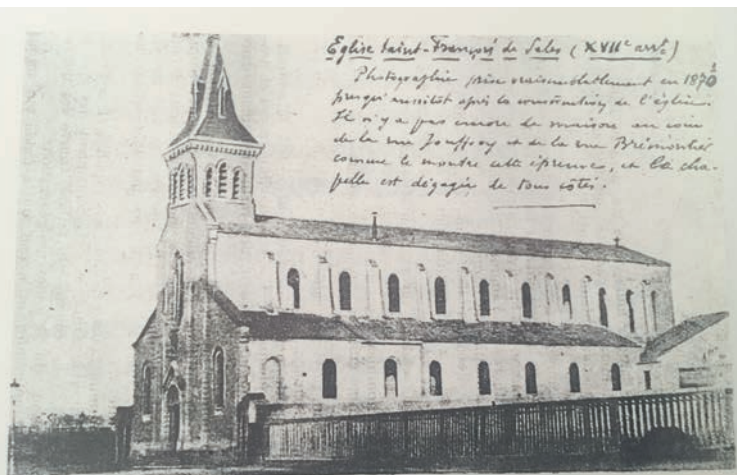 Eglise Saint-François de Sales (XVIIe arrt)
Photographie prise vraisemblablement en 1870
presqu'aussitôt après la construction de l'église.
Il n'y a pas encore de maison au coin
de la rue Jouffroy et de la rue Brémontier
comme le montre cette épreuve, et la cha-
pelle est dégagée de tous côtés.